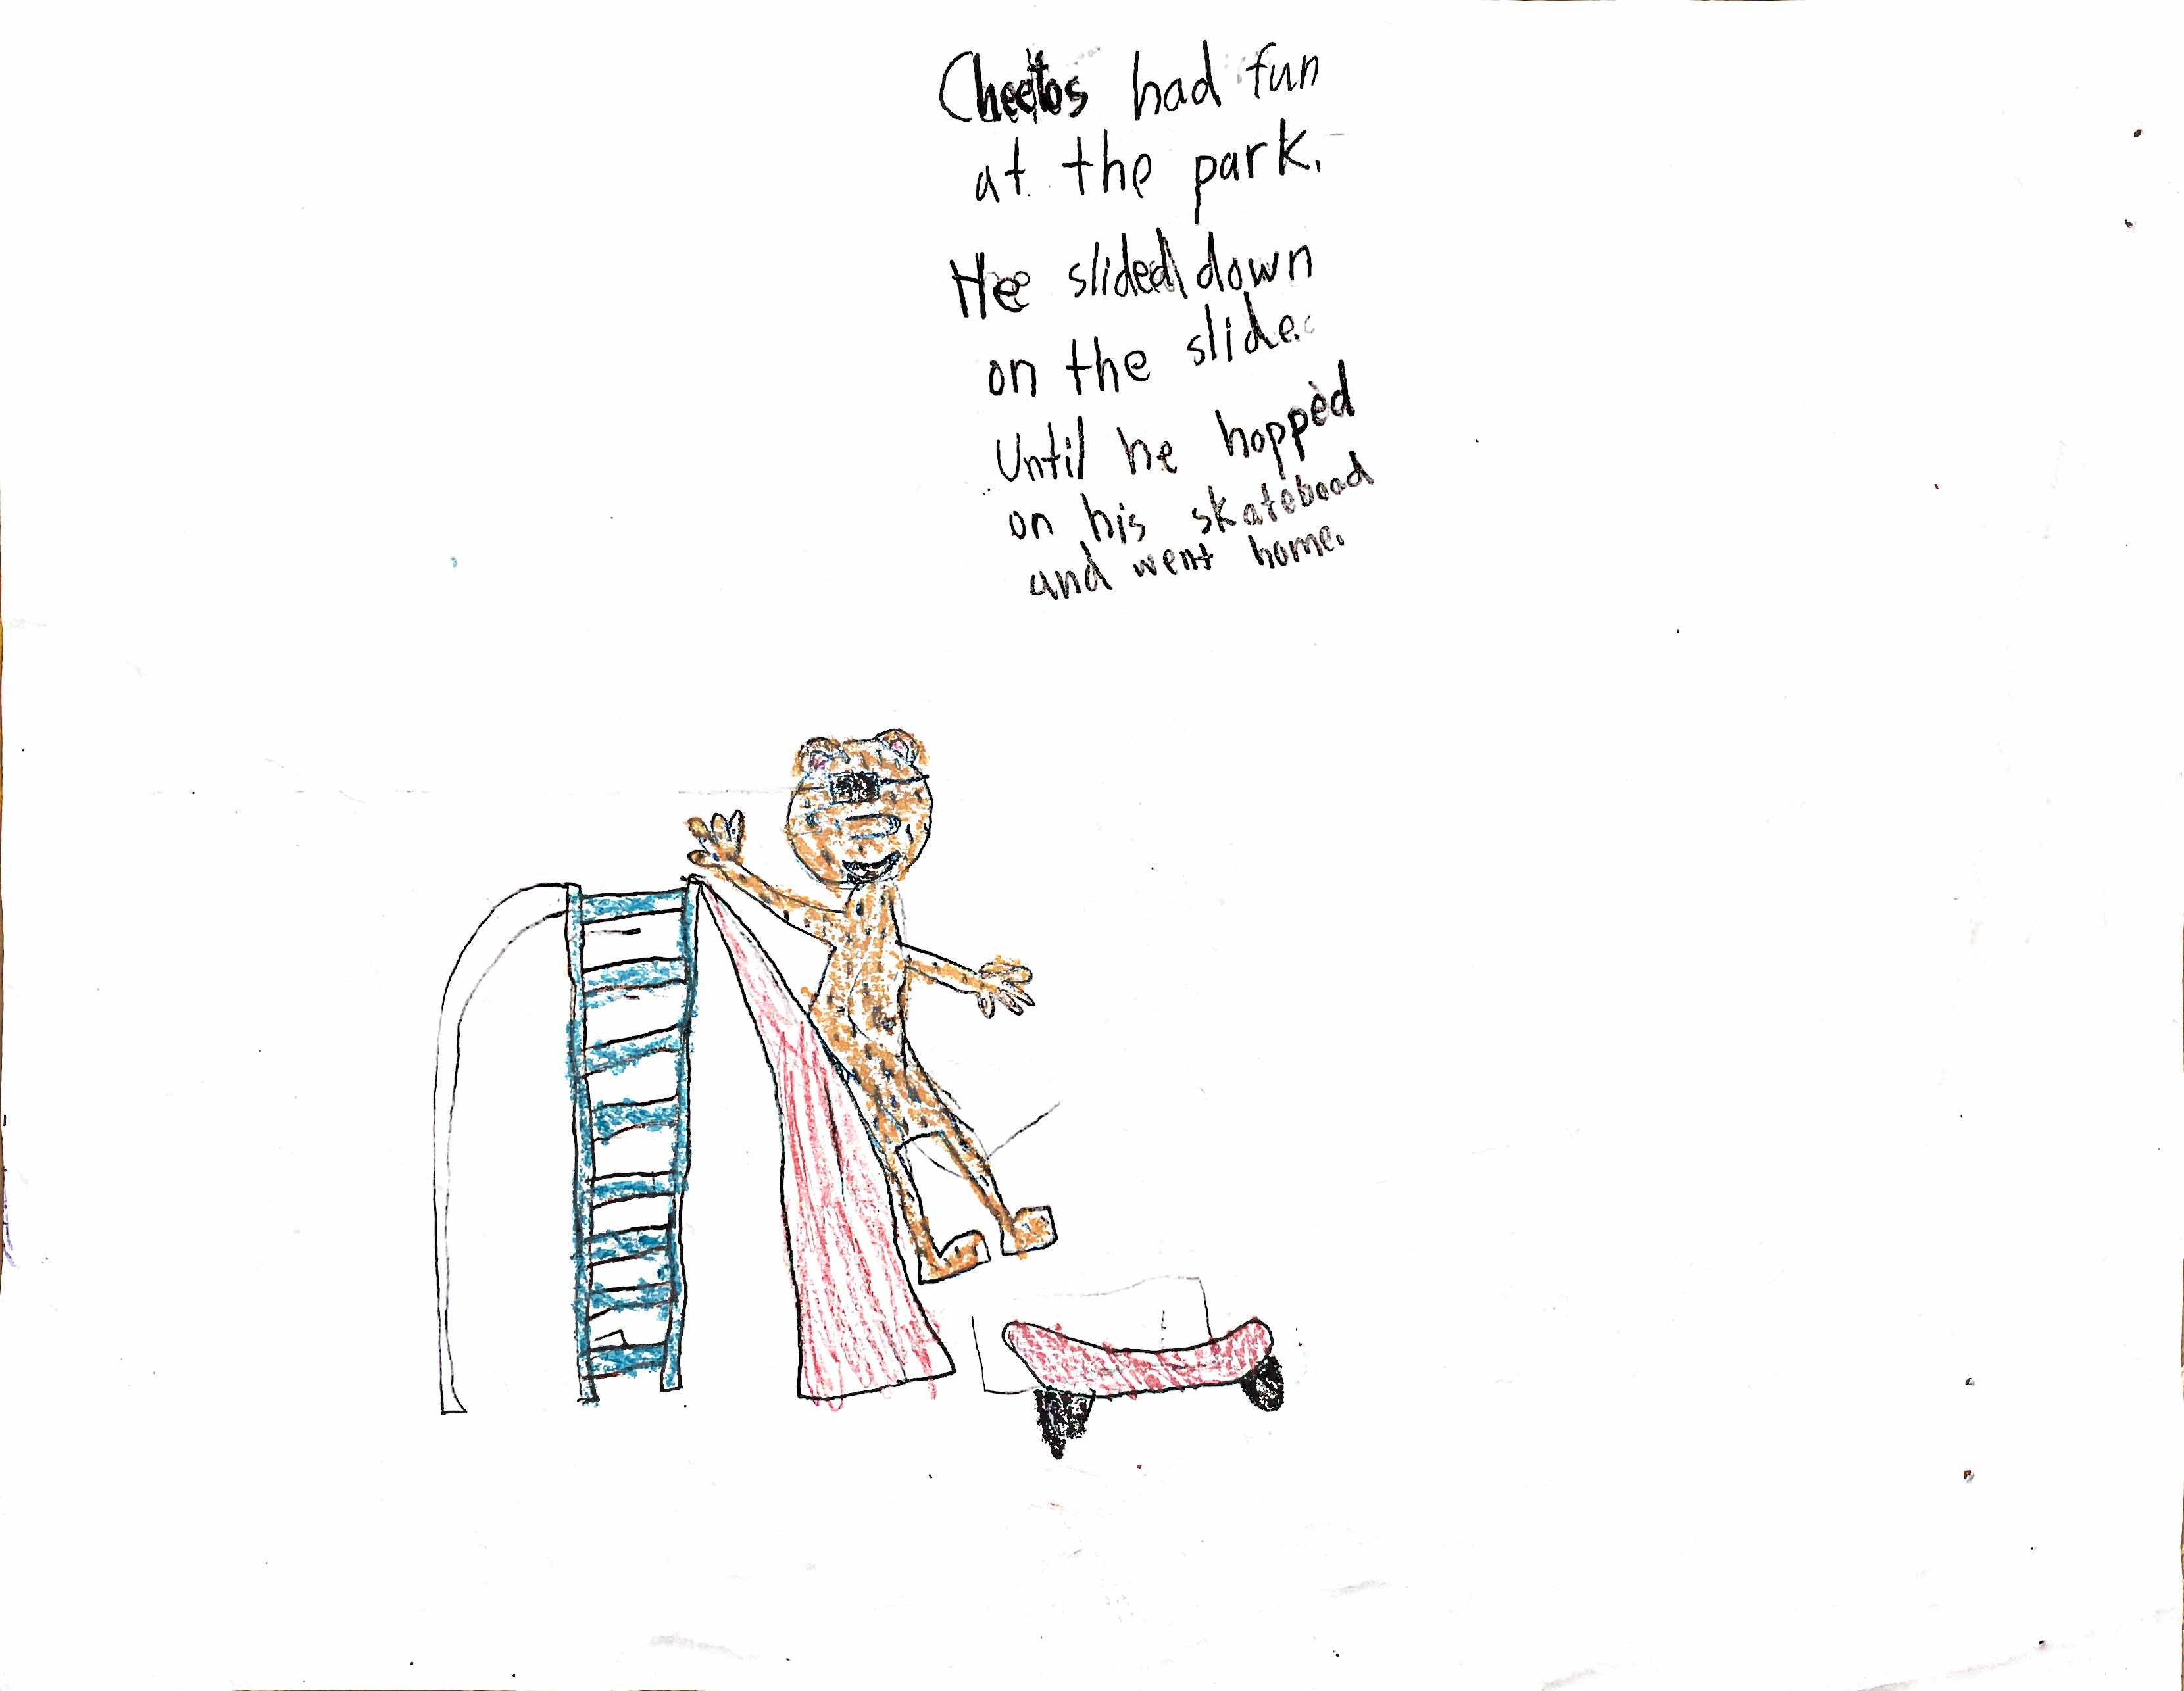 Cheetos had fun
at the park.
He slided down
on the slide.
Until he hopped
on his skateboad
and went home.